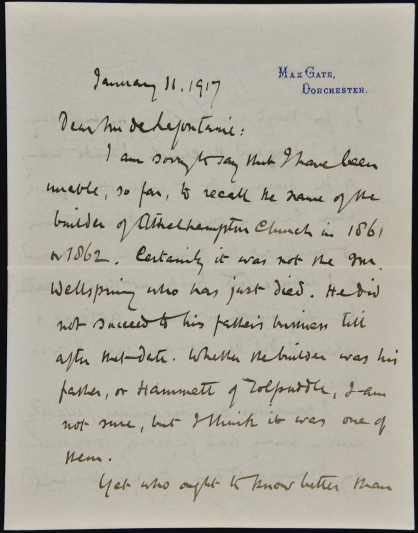 January 11. 1917
MAX GATE,
DORCHESTER.
Dear Mr de Lafontaine:
I am sorry to say that I have been
unable, so far, to recall the name of the
builder of Athelhampton Church in 1861
or 1862. Certainly it was not the Mr.
Wellspring who has just died. He did
not succeed to his father's business till
after that date. Whether the builder was his
father, or Hammett of Tolpuddle, I am
not sure, but I think it was one of
them.
Yet who ought to know better than